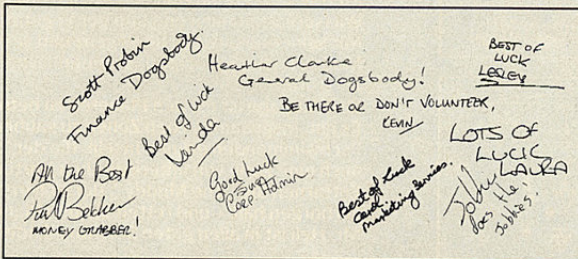 Scott Probin
Finance Dogsbody.
Heather Clarke
General Dogsbody!
BEST OF
LUCK
LESLEY
BE THERE OR DON'T VOLUNTEER,
KEVIN
Best of luck
Linda
LOTS OF
LUCK
LAURA
All the Best
Paul
MONEY GRABBER!
Good Luck
Corp Admin
Best of Luck
Carol
Marketing Services.
John
Does the
Jobbies!